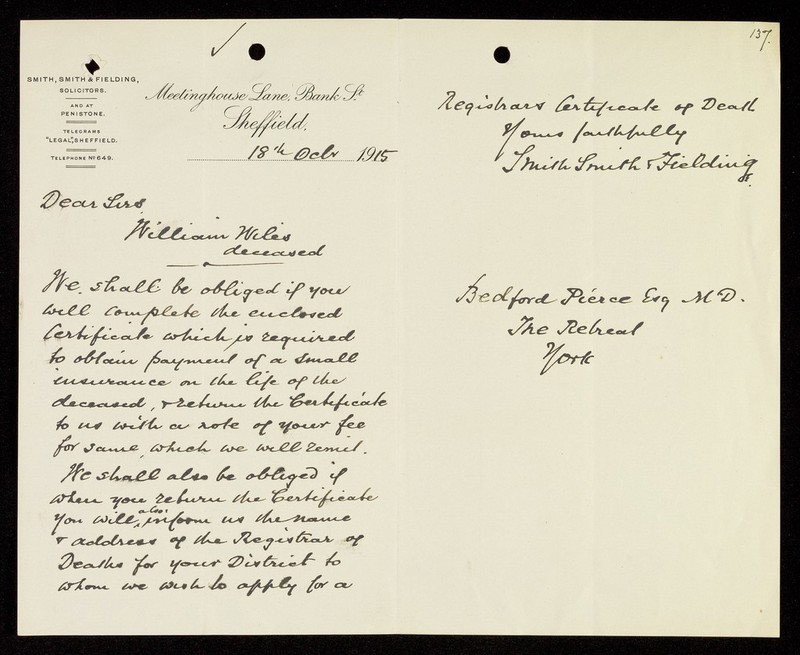 SMITH, SMITH & FIELDING,
SOLICITORS.
AND AT
PENISTONE.
TELEGRAMS
"LEGAL", SHEFFIELD.
TELEPHONE No 649.
Meetinghouse Lane, Bank St
Sheffield,
18th Octr 1915
Dear Sirs
William Wiles
deceased
We shall be obliged if you
will complete the enclosed
Certificate which is required
to obtain payment of a small
insurance on the life of the
deceased, & return the Certificate
to us with a note of your fee
for same, which we will remit.
We shall also be obliged if
when you return the Certificate
you will also inform us the name
& address of the Registrar of
Deaths for your District to
whom we wish to apply for a
137.
Registrars Certificate of Death
Yours faithfully
Smith Smith & Fielding
Bedford Pierce Esq M D.
The Retreat
York